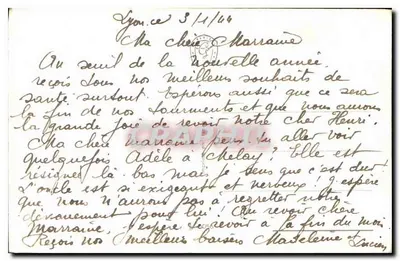 Lyon. ce 3/1/44
Ma chère Marraine
Au seuil de la nouvelle année.
reçois tous nos meilleurs souhaits de
santé surtout. Espérons aussi que ce sera
la fin de nos tourments et que nous aurons
la grande joie de revoir notre cher Henri.
Ma chère marraine peux tu aller voir
quelquefois Adèle à Melay? Elle est
résignée là bas mais je sens que c'est dur
L'oncle est si exigeant et nerveux! J'espère
que nous n'aurons pas à regretter notre
dévouement pour lui! Au revoir chère
Marraine, j'espère te revoir à la fin du mois.
Reçois nos meilleurs baisers Madeleine et
Lucien